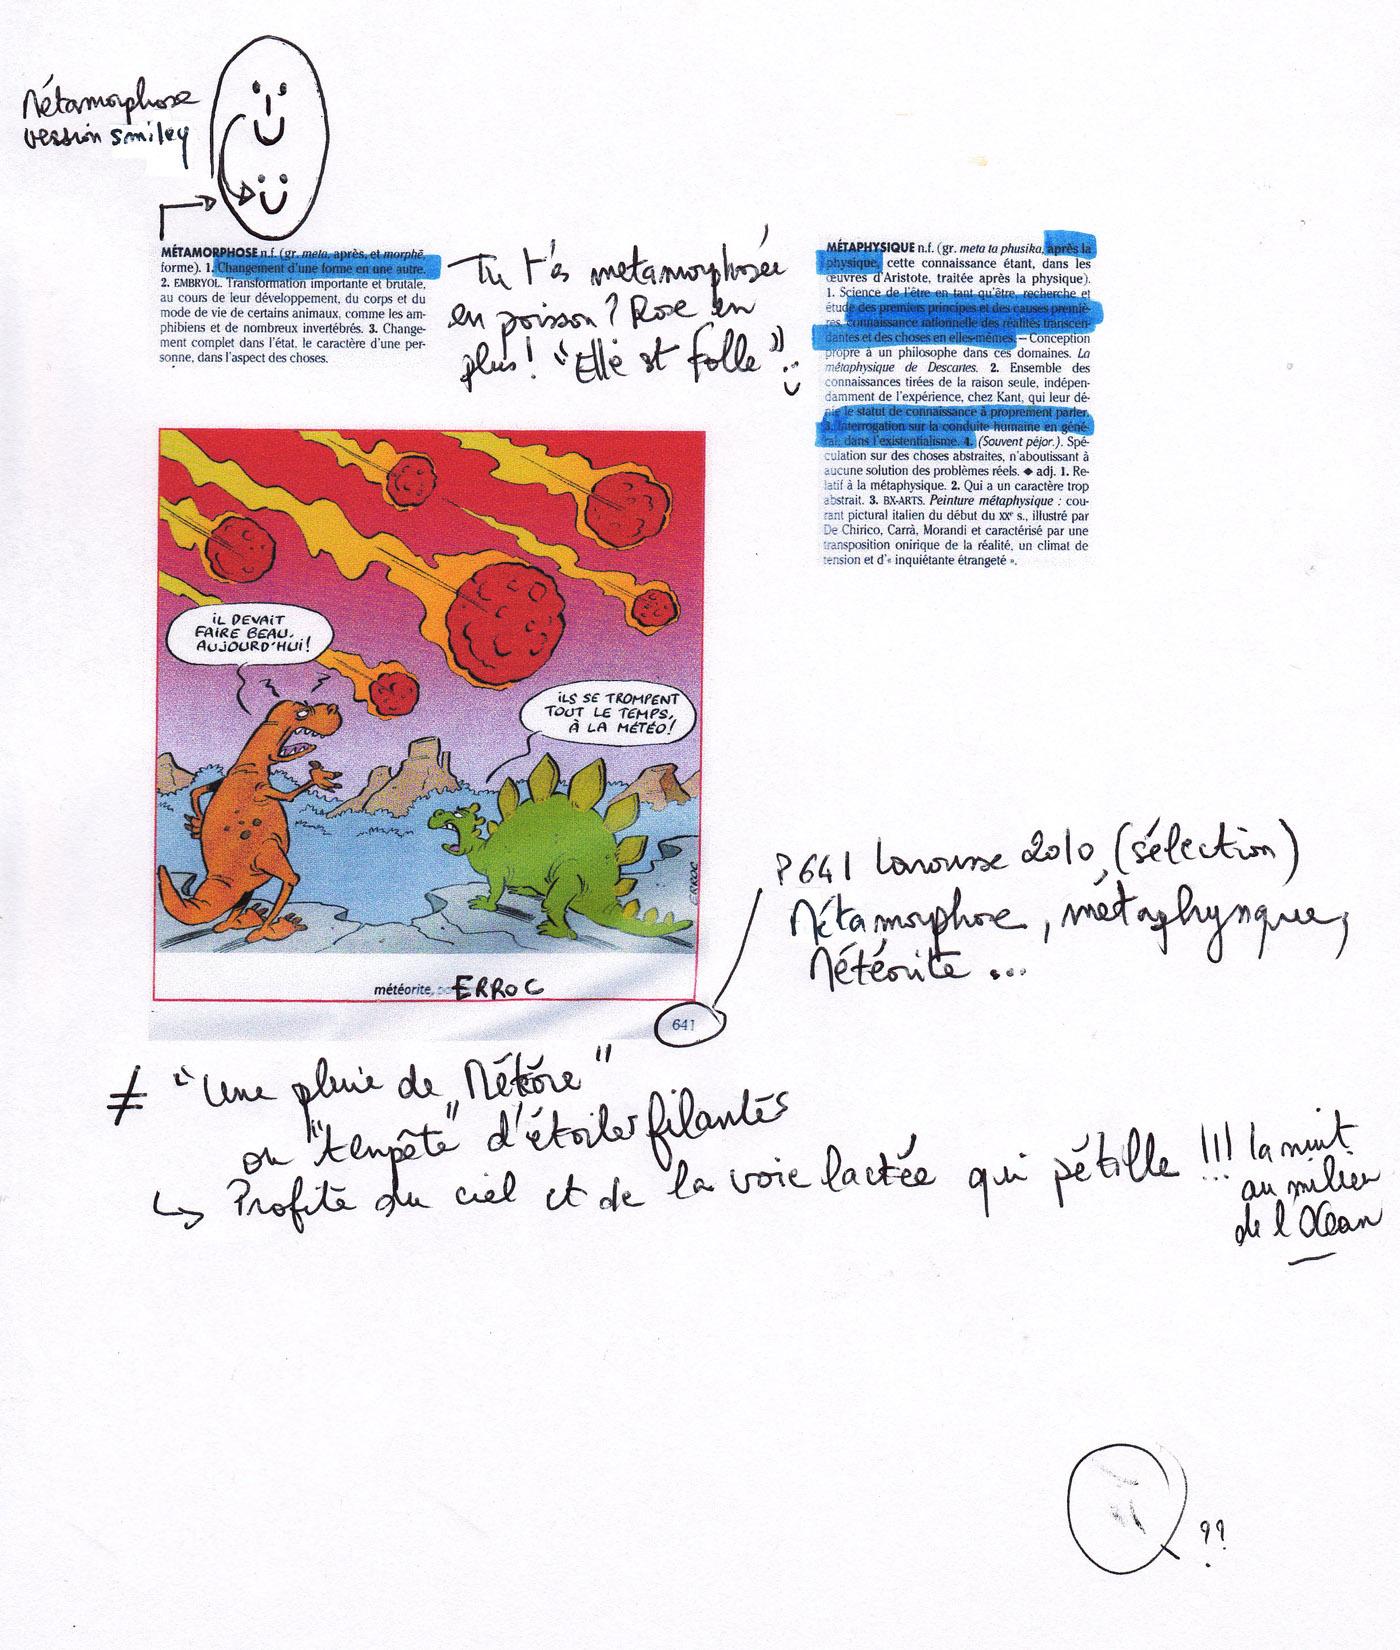 Métamorphose
version smiley
MÉTAMORPHOSE n.f. (gr. meta, après, et morphê,
forme). 1. Changement d'une forme en une autre.
2. EMBRYOL. Transformation importante et brutale,
au cours de leur développement, du corps et du
mode de vie de certains animaux, comme les am-
phibiens et de nombreux invertébrés. 3. Change-
ment complet dans l'état, le caractère d'une per-
sonne, dans l'aspect des choses.
Tu t'es métamorphosée
en poisson ? Rose en
plus ! "Elle est folle"
MÉTAPHYSIQUE n.f. (gr. meta ta phusika, après la
physique, cette connaissance étant, dans les
œuvres d'Aristote, traitée après la physique).
1. Science de l'être en tant qu'être, recherche et
étude des premiers principes et des causes premiè-
res, connaissance rationnelle des réalités transcen-
dantes et des choses en elles-mêmes. – Conception
propre à un philosophe dans ces domaines. La
métaphysique de Descartes. 2. Ensemble des
connaissances tirées de la raison seule, indépen-
damment de l'expérience, chez Kant, qui leur dé-
nie le statut de connaissance à proprement parler.
3. Interrogation sur la conduite humaine en géné-
ral, dans l'existentialisme. 4. (Souvent péjor.). Spé-
culation sur des choses abstraites, n'aboutissant à
aucune solution des problèmes réels. ◆ adj. 1. Re-
latif à la métaphysique. 2. Qui a un caractère trop
abstrait. 3. BX-ARTS. Peinture métaphysique : cou-
rant pictural italien du début du XXe s., illustré par
De Chirico, Carrà, Morandi et caractérisé par une
transposition onirique de la réalité, un climat de
tension et d'« inquiétante étrangeté ».
IL DEVAIT
FAIRE BEAU,
AUJOURD'HUI !
ILS SE TROMPENT
TOUT LE TEMPS,
À LA MÉTÉO !
ERROC
météorite, ERROC
641
P 641 Larousse 2010, (sélection)
Métamorphose, métaphysique,
Météorite ...
≠ "Une pluie de Météore"
ou "tempête" d'étoiles filantes
↳ Profite du ciel et de la voie lactée qui pétille !!! la nuit
au milieu
de l'Océan
??